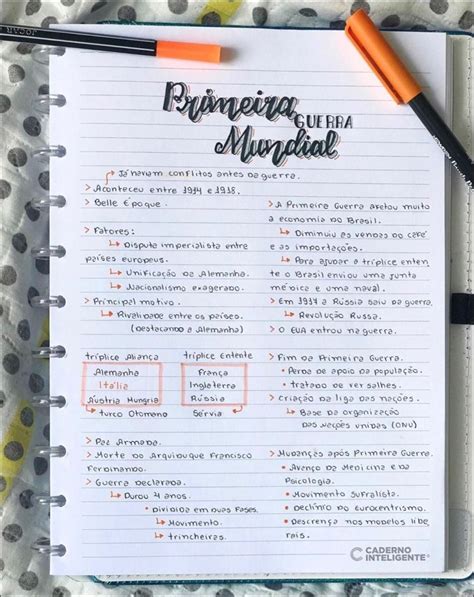 Primeira
GUERRA
Mundial
Já haviam conflitos antes da guerra.
> Aconteceu entre 1914 e 1918.
> Belle Époque.
> Fatores:
↳ Disputa imperialista entre
países europeus.
↳ Unificação da Alemanha.
↳ Nacionalismo exagerado.
> Principal motivo.
↳ Rivalidade entre os países.
(destacando a Alemanha)
tríplice Aliança
Alemanha
Itália
Áustria Hungria
↳ turco Otomano
tríplice Entente
França
Inglaterra
Rússia
↳ Sérvia
> Paz Armada.
> Morte do Arquiduque Francisco
Ferdinando.
> Guerra Declarada.
↳ Durou 4 anos.
• Dividida em duas Fases.
↳ Movimento.
↳ trincheiras.
> A Primeira Guerra afetou muito
a economia do Brasil.
↳ Diminuiu as vendas do café
e as importações.
↳ Para ajudar a tríplice enten
te o Brasil enviou uma junta
médica e uma naval.
> Em 1917 a Rússia saiu da guerra.
↳ Revolução Russa.
> O EUA entrou na guerra.
> Fim da Primeira Guerra.
• Perda de apoio da população.
• tratado de versalhes.
> Criação da liga das nações.
↳ Base da organização
das nações unidas (ONU)
> Mudanças após Primeira Guerra.
• Avanço da Medicina e da
Psicologia.
• Movimento Sufralista.
• Declínio do Eurocentrismo.
• Descrença nos modelos libe
rais.
CADERNO
INTELIGENTE